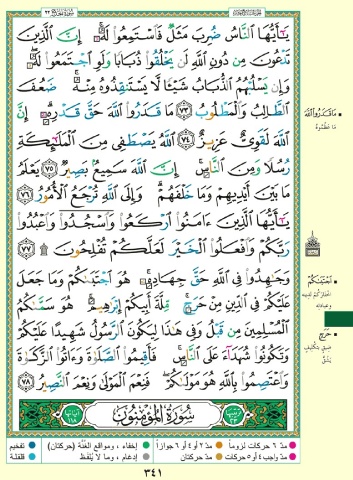 يَٰٓأَيُّهَا ٱلنَّاسُ ضُرِبَ مَثَلٌ فَٱسْتَمِعُوا۟ لَهُۥٓ ۚ إِنَّ ٱلَّذِينَ
تَدْعُونَ مِن دُونِ ٱللَّهِ لَن يَخْلُقُوا۟ ذُبَابًا وَلَوِ ٱجْتَمَعُوا۟ لَهُۥ ۖ
وَإِن يَسْلُبْهُمُ ٱلذُّبَابُ شَيْـًٔا لَّا يَسْتَنقِذُوهُ مِنْهُ ۚ ضَعُفَ
ٱلطَّالِبُ وَٱلْمَطْلُوبُ ٧٣ مَا قَدَرُوا۟ ٱللَّهَ حَقَّ قَدْرِهِۦٓ ۗ إِنَّ
ٱللَّهَ لَقَوِىٌّ عَزِيزٌ ٧٤ ٱللَّهُ يَصْطَفِى مِنَ ٱلْمَلَٰٓئِكَةِ
رُسُلًا وَمِنَ ٱلنَّاسِ ۚ إِنَّ ٱللَّهَ سَمِيعٌۢ بَصِيرٌ ٧٥ يَعْلَمُ
مَا بَيْنَ أَيْدِيهِمْ وَمَا خَلْفَهُمْ ۗ وَإِلَى ٱللَّهِ تُرْجَعُ ٱلْأُمُورُ ٧٦
يَٰٓأَيُّهَا ٱلَّذِينَ ءَامَنُوا۟ ٱرْكَعُوا۟ وَٱسْجُدُوا۟ وَٱعْبُدُوا۟
رَبَّكُمْ وَٱفْعَلُوا۟ ٱلْخَيْرَ لَعَلَّكُمْ تُفْلِحُونَ ۩ ٧٧
وَجَٰهِدُوا۟ فِى ٱللَّهِ حَقَّ جِهَادِهِۦ ۚ هُوَ ٱجْتَبَىٰكُمْ وَمَا جَعَلَ
عَلَيْكُمْ فِى ٱلدِّينِ مِنْ حَرَجٍ ۚ مِّلَّةَ أَبِيكُمْ إِبْرَٰهِيمَ ۚ هُوَ سَمَّىٰكُمُ
ٱلْمُسْلِمِينَ مِن قَبْلُ وَفِى هَٰذَا لِيَكُونَ ٱلرَّسُولُ شَهِيدًا عَلَيْكُمْ
وَتَكُونُوا۟ شُهَدَآءَ عَلَى ٱلنَّاسِ ۚ فَأَقِيمُوا۟ ٱلصَّلَوٰةَ وَءَاتُوا۟ ٱلزَّكَوٰةَ
وَٱعْتَصِمُوا۟ بِٱللَّهِ هُوَ مَوْلَىٰكُمْ ۖ فَنِعْمَ ٱلْمَوْلَىٰ وَنِعْمَ ٱلنَّصِيرُ ٧٨
سُورَةُ المُؤْمِنُونَ
مَا قَدَرُوا اللَّهَ
مَا عَظَّمُوهُ
اجْتَبَاكُمْ
حَرَجٍ
مدّ ٦ حركات لزوماً
مدّ ٢ أو ٤ أو ٦ جوازاً
إخفاء، ومواقع الغُنَّة (حركتان)
تفخيم
مدّ واجب ٤ أو ٥ حركات
مدّ حركتان
إدغام، وما لا يُلفَظ
قلقلة
٣٤١